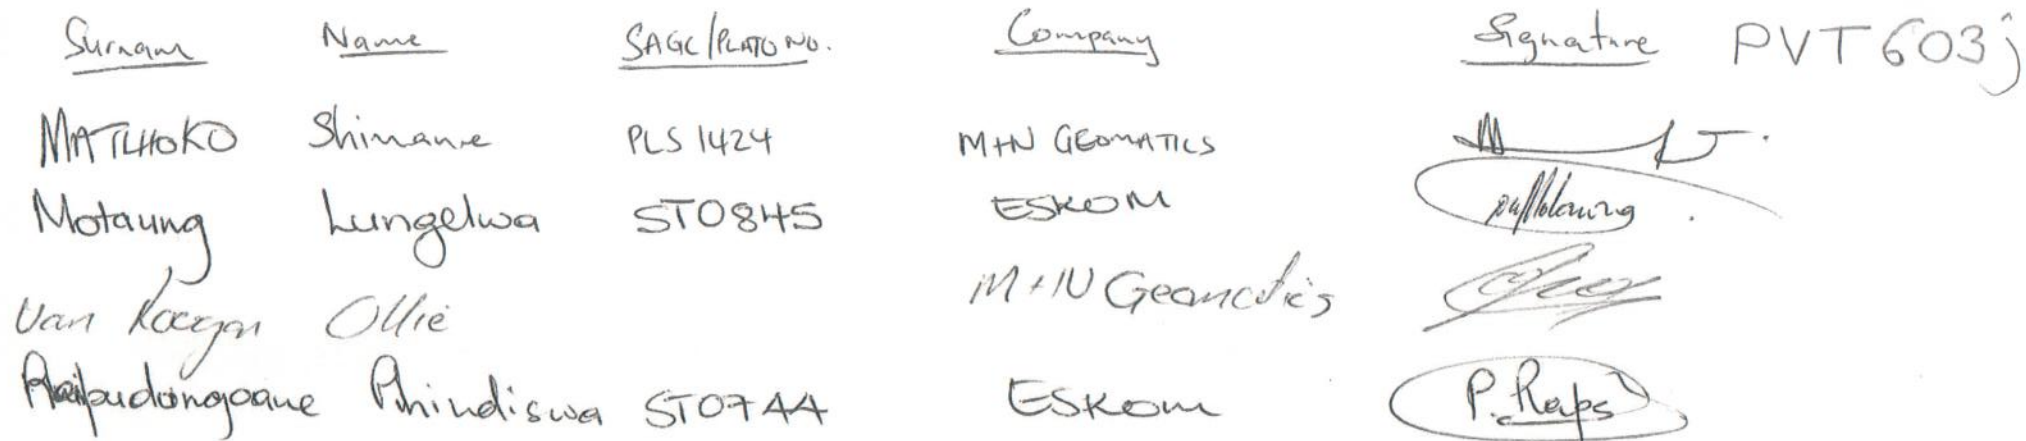 Surnam Name SAGC/PLATO NO. Company Signature PVT603j
MATLHOKO Shimane PLS 1424 M+N GEOMATICS
Motaung Lungelwa ST0845 ESKOM
Van Ollie M+N Geomatics
Phindiswa ST0744 ESKOM P. Raps